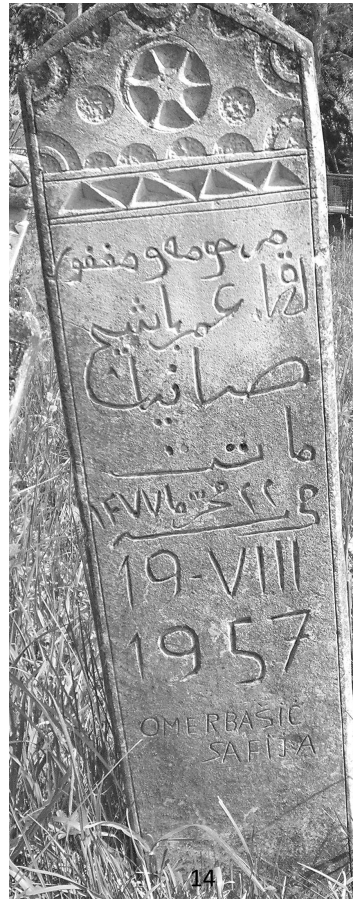 مرحومه و مغفور
لها عمرباشيچ
ما تت
٢٢ محرم ١٣٧٧
19-VIII
1957
OMERBAŠIĆ
SAFIJA
14